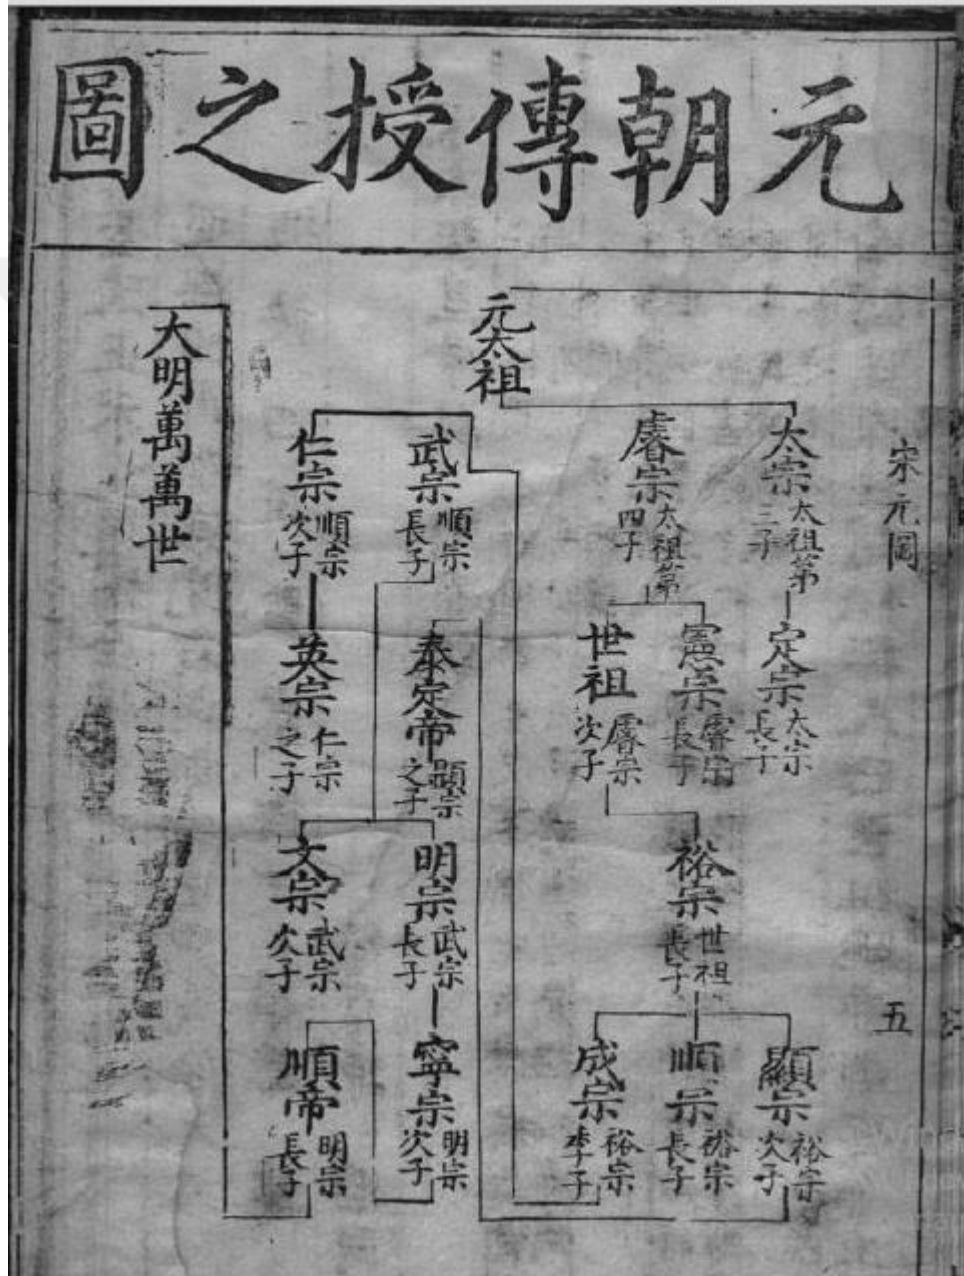 元朝傳授之圖
宋元图
五
元太祖
太宗 太祖第三子
睿宗 太祖第四子
定宗 太宗長子
憲宗 睿宗長子
世祖 睿宗次子
裕宗 世祖長子
顯宗 裕宗次子
順宗 裕宗長子
成宗 裕宗季子
武宗 順宗長子
仁宗 順宗次子
泰定帝 顯宗之子
英宗 仁宗之子
明宗 武宗長子
文宗 武宗次子
寧宗 明宗次子
順帝 明宗長子
大明萬萬世